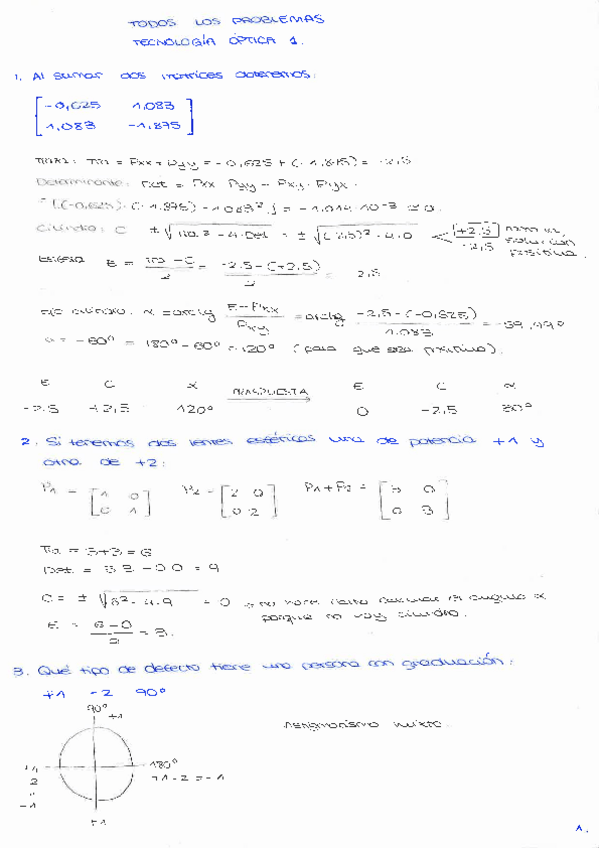 TODOS LOS PROBLEMAS
TECNOLOGÍA ÓPTICA 1.
1. Al sumar dos matrices obtenemos:
-0,625 1,083
1,083 -1,875
Traza: Tra = Pxx + Pyy = -0,625 + (-1,875) = -2,5
Determinante: Det = Pxx Pyy - Pxy · Pyx.
[(-0,625) · (-1,875) - 1083²] = -1,014·10-3 ≈ 0.
Cilindro: C ± √tra² - 4·Det = ± √(2,5)² - 4·0 +2,5
-2,5 solución positiva.
Esfera E = tra - C / 2 = -2,5 - (+2,5) / 2 = 2,5
Eje cilindro: α = arctg E - Pxx / Pxy = arctg -2,5 - (-0,625) / 1.083 = -59,99º
α = -60º = 180º - 60º = 120º (para que sea positivo).
E C α TRASPUESTA E C α
-2.5 +2,5 120º 0 -2,5 30º
2. Si tenemos dos lentes esféricas una de potencia +1 y
otra de +2:
P1 = 1 0 P2 = 2 0 P1 + P2 = 3 0
0 1 0 2 0 3
Tra = 3+3 = 6
Det = 3·3 - 0·0 = 9
C = ± √6² - 4·9 = 0 no hace falta calcular el ángulo α
porque no hay cilindro.
E = 6-0 / 2 = 3.
3. Qué tipo de defecto tiene una persona con graduación:
+1 -2 90º
90º
+1
Astigmatismo mixto.
+1 180º
2 +1 - 2 = -1
-1
+1
1.